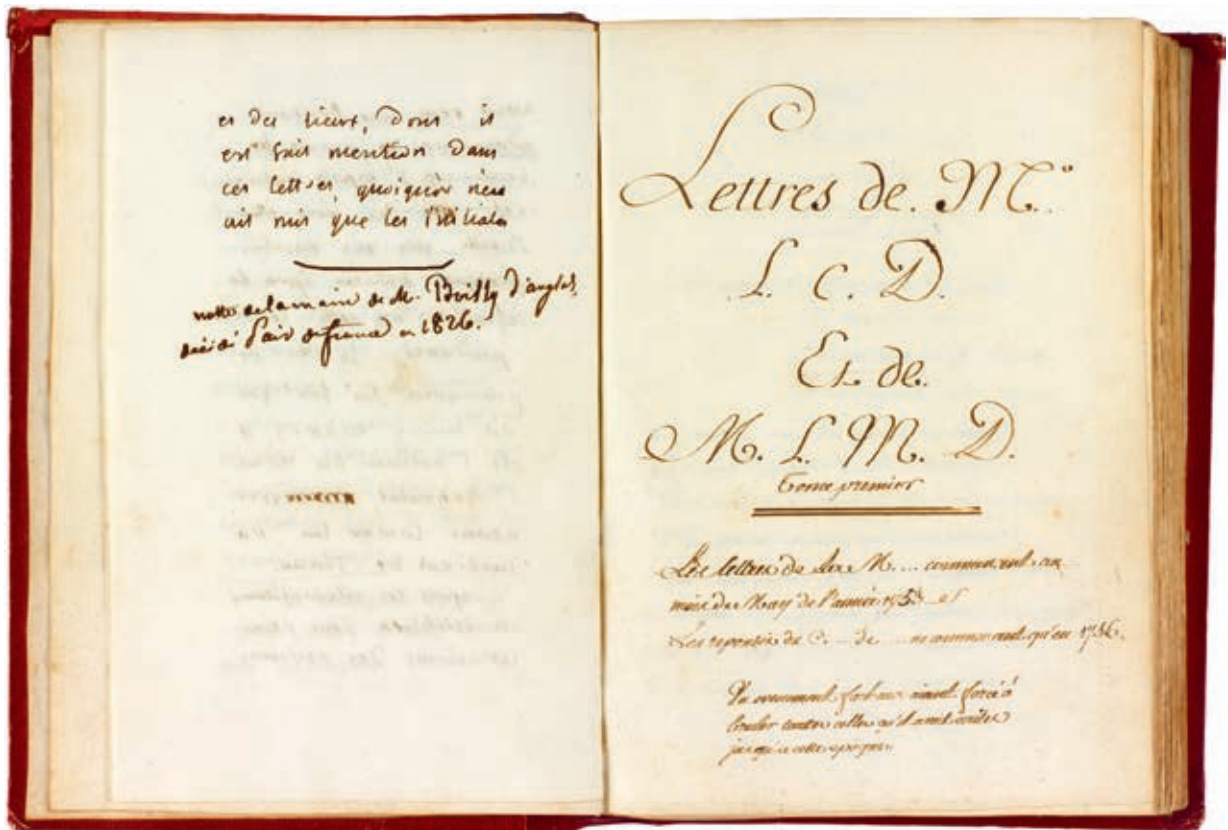 et des lieux, dont il
est fait mention dans
ces lettres quoiquon n'en
ait mis que les initiales
notte de la main de M. Boissy d'anglas,
Pair de france en 1826.
Lettres de M.
L. C. D.
Et de
M. L. M. D.
Tome premier
Les lettres de La M.... commencent au
mois de May de l'année 175
Les reponses de C. — de .... ne commencent qu'en 1756.
Un evenement facheux aiant forcé à
bruler toutes celles qu'il avait écrites
jusqu'a cette epoque.